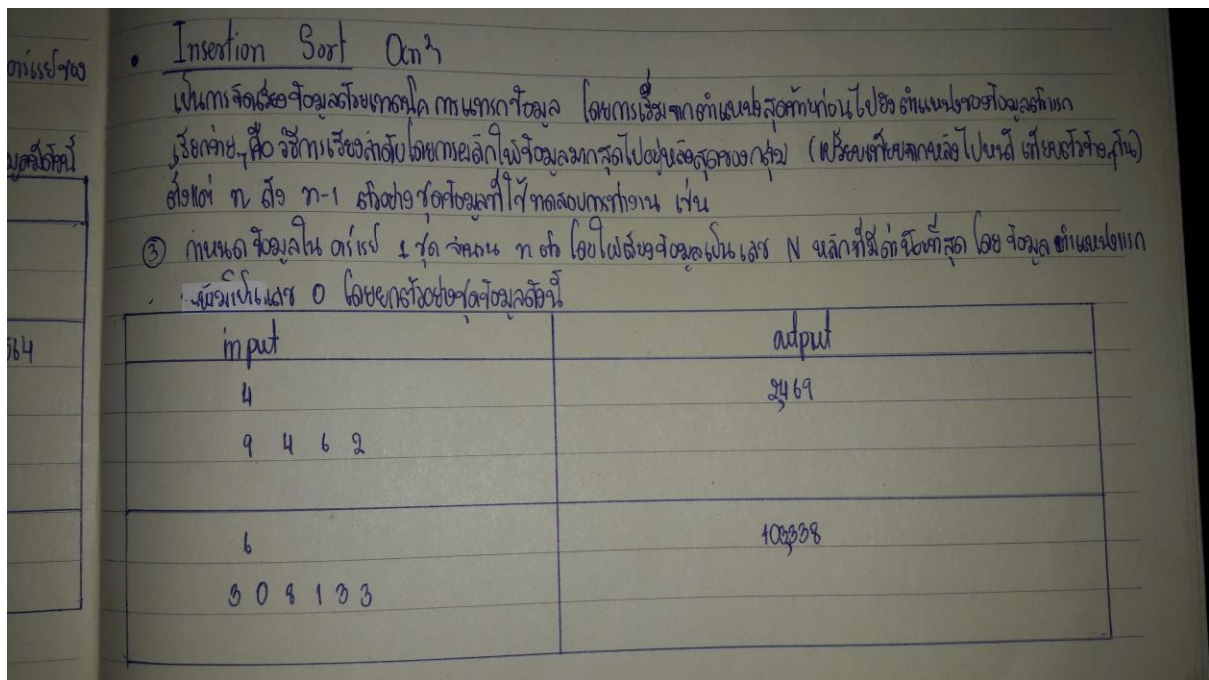 อาร์เรย์ของ
มูลมีดังนี้
564
• Insertion Sort O(n²)
เป็นการจัดเรียงข้อมูลด้วยเทคนิค การแทรกข้อมูล โดยการเริ่มจากตำแหน่งสุดท้ายก่อนไปยังตำแหน่งของข้อมูลตัวแรก
เรียกง่ายๆคือ วิธีการเรียงลำดับโดยการผลักให้ข้อมูลมากสุดไปอยู่หลังสุดของกลุ่ม (เปรียบเทียบจากหลังไปหน้า เทียบตัวข้างๆกัน)
ตั้งแต่ n ถึง n-1 ตัวอย่างชุดข้อมูลที่ใช้ทดสอบการทำงาน เช่น
③ กำหนดข้อมูลใน อาร์เรย์ 1 ชุด จำนวน n ตัว โดยให้เรียงข้อมูลเป็นเลข N หลักที่มีค่าน้อยที่สุด โดย ข้อมูล ตำแหน่งแรก
ต้องไม่เป็นเลข 0 โดยยกตัวอย่างชุดข้อมูลดังนี้
input output
4 2,469
9 4 6 2
6 103,338
3 0 8 1 3 3